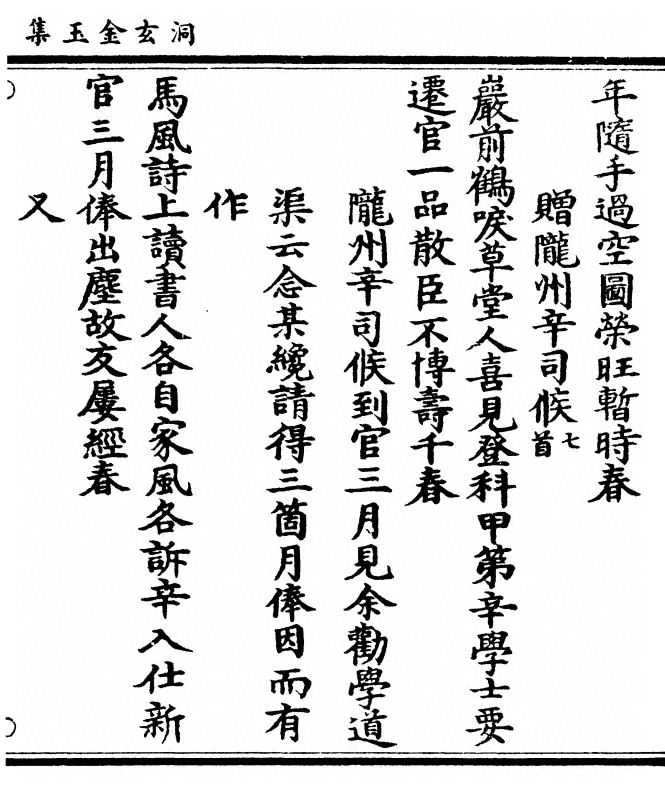 洞玄金玉集
年隨手過空圖榮旺暫時春
贈隴州辛司候七首
巖前鶴唳草堂人喜見登科甲第辛學士要
遷官一品散臣不博壽千春
隴州辛司候到官三月見余勸學道
渠云念某纔請得三箇月俸因而有
作
馬風詩上讀書人各自家風各訴辛入仕新
官三月俸出塵故友屢經春
又